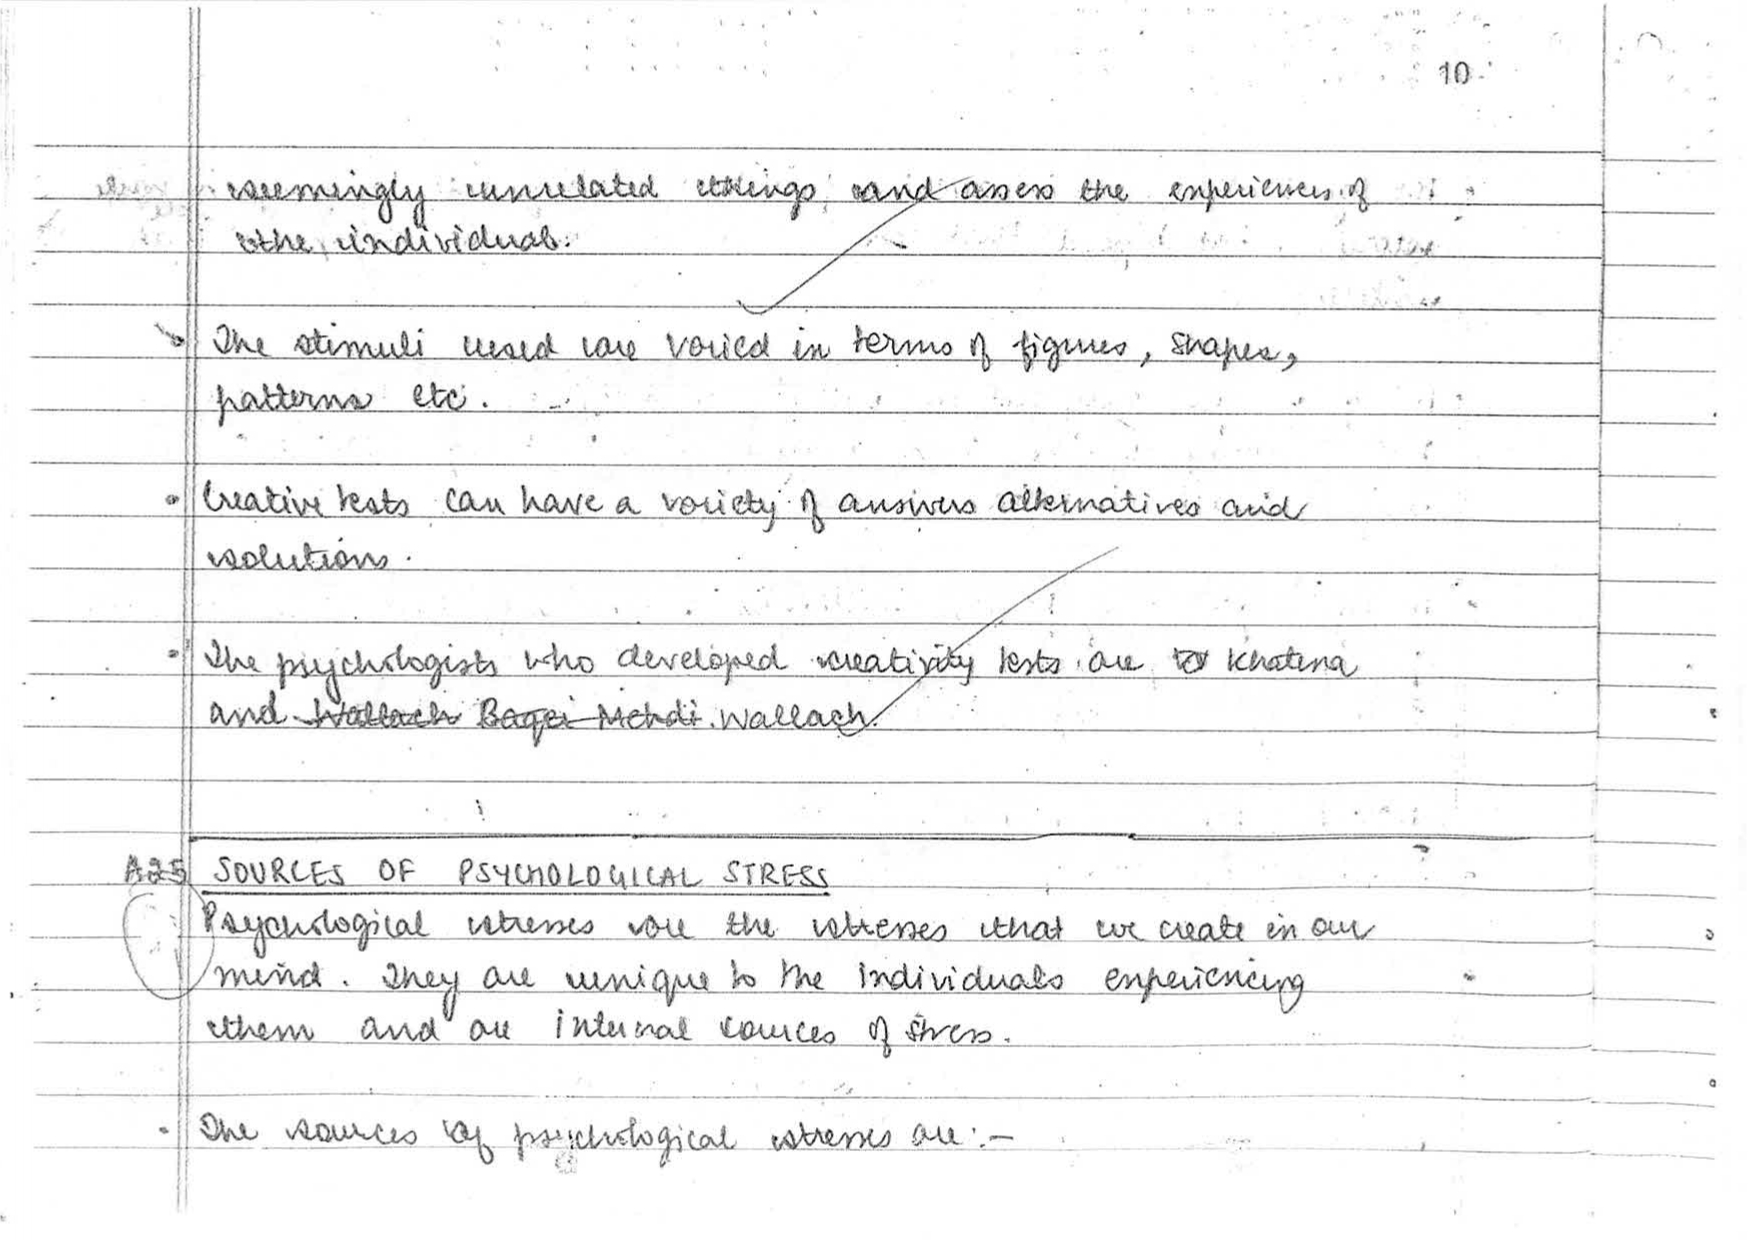 10
seemingly unrelated things and assess the experiences of
the individual.
The stimuli used are varied in terms of figures, shapes,
patterns etc.
• Creative tests can have a variety of answers alternatives and
solutions.
• The psychologists who developed creativity tests are Khatena
and Wallach Baqei Mehdi Wallach.
A25 SOURCES OF PSYCHOLOGICAL STRESS
Psychological stresses are the stresses that we create in our
mind. They are unique to the individuals experiencing
them and are internal sources of stress.
• The sources of psychological stresses are:-